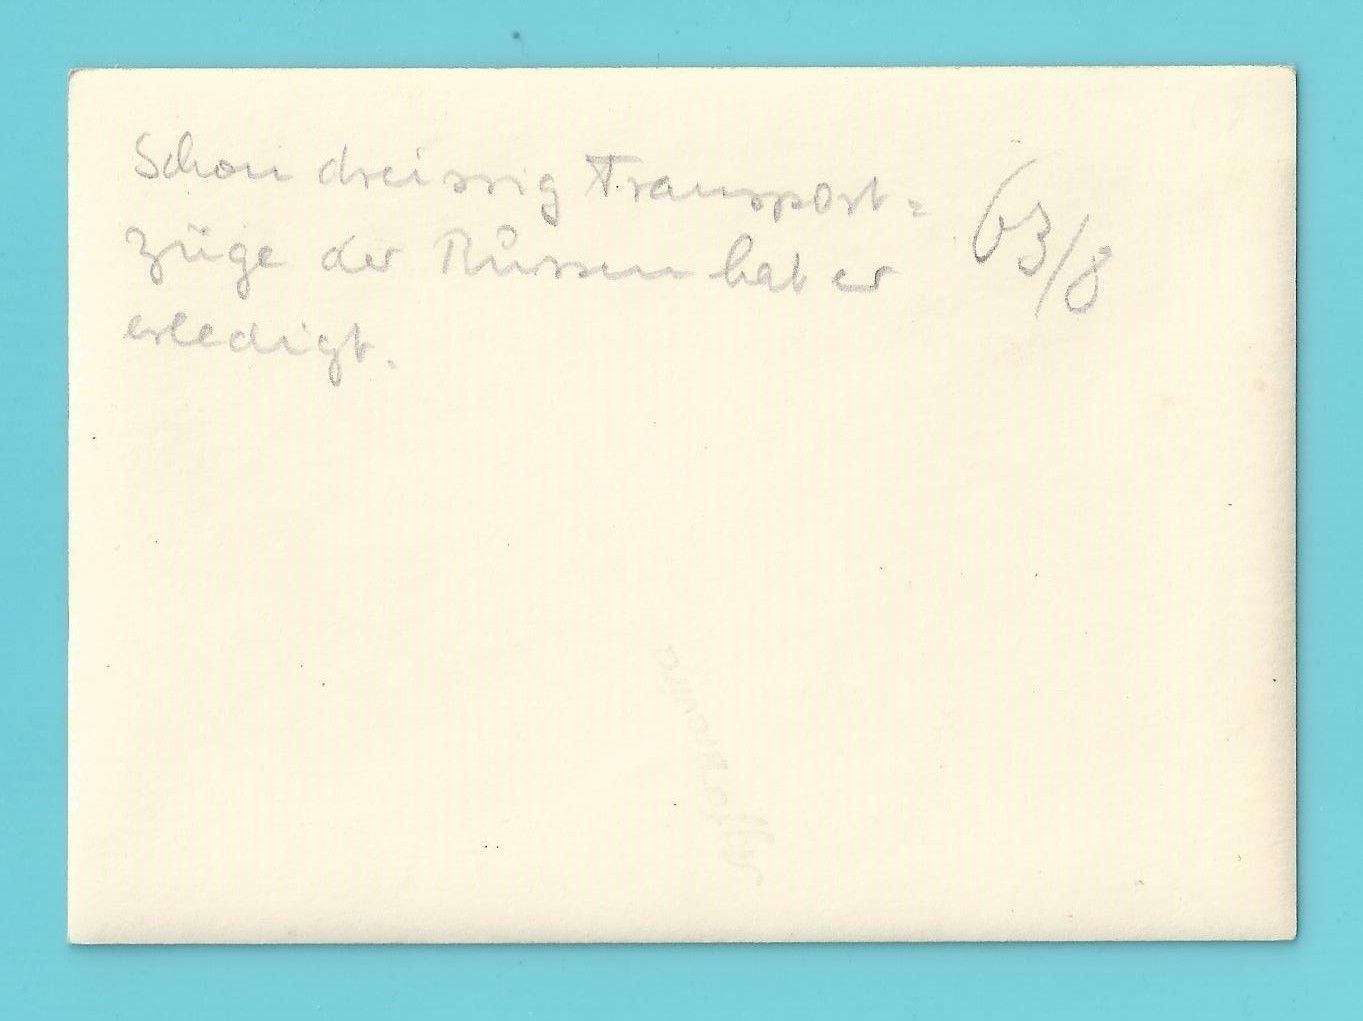 Schon dreissig Transport=
züge der Russen hat er
erledigt.
63/8